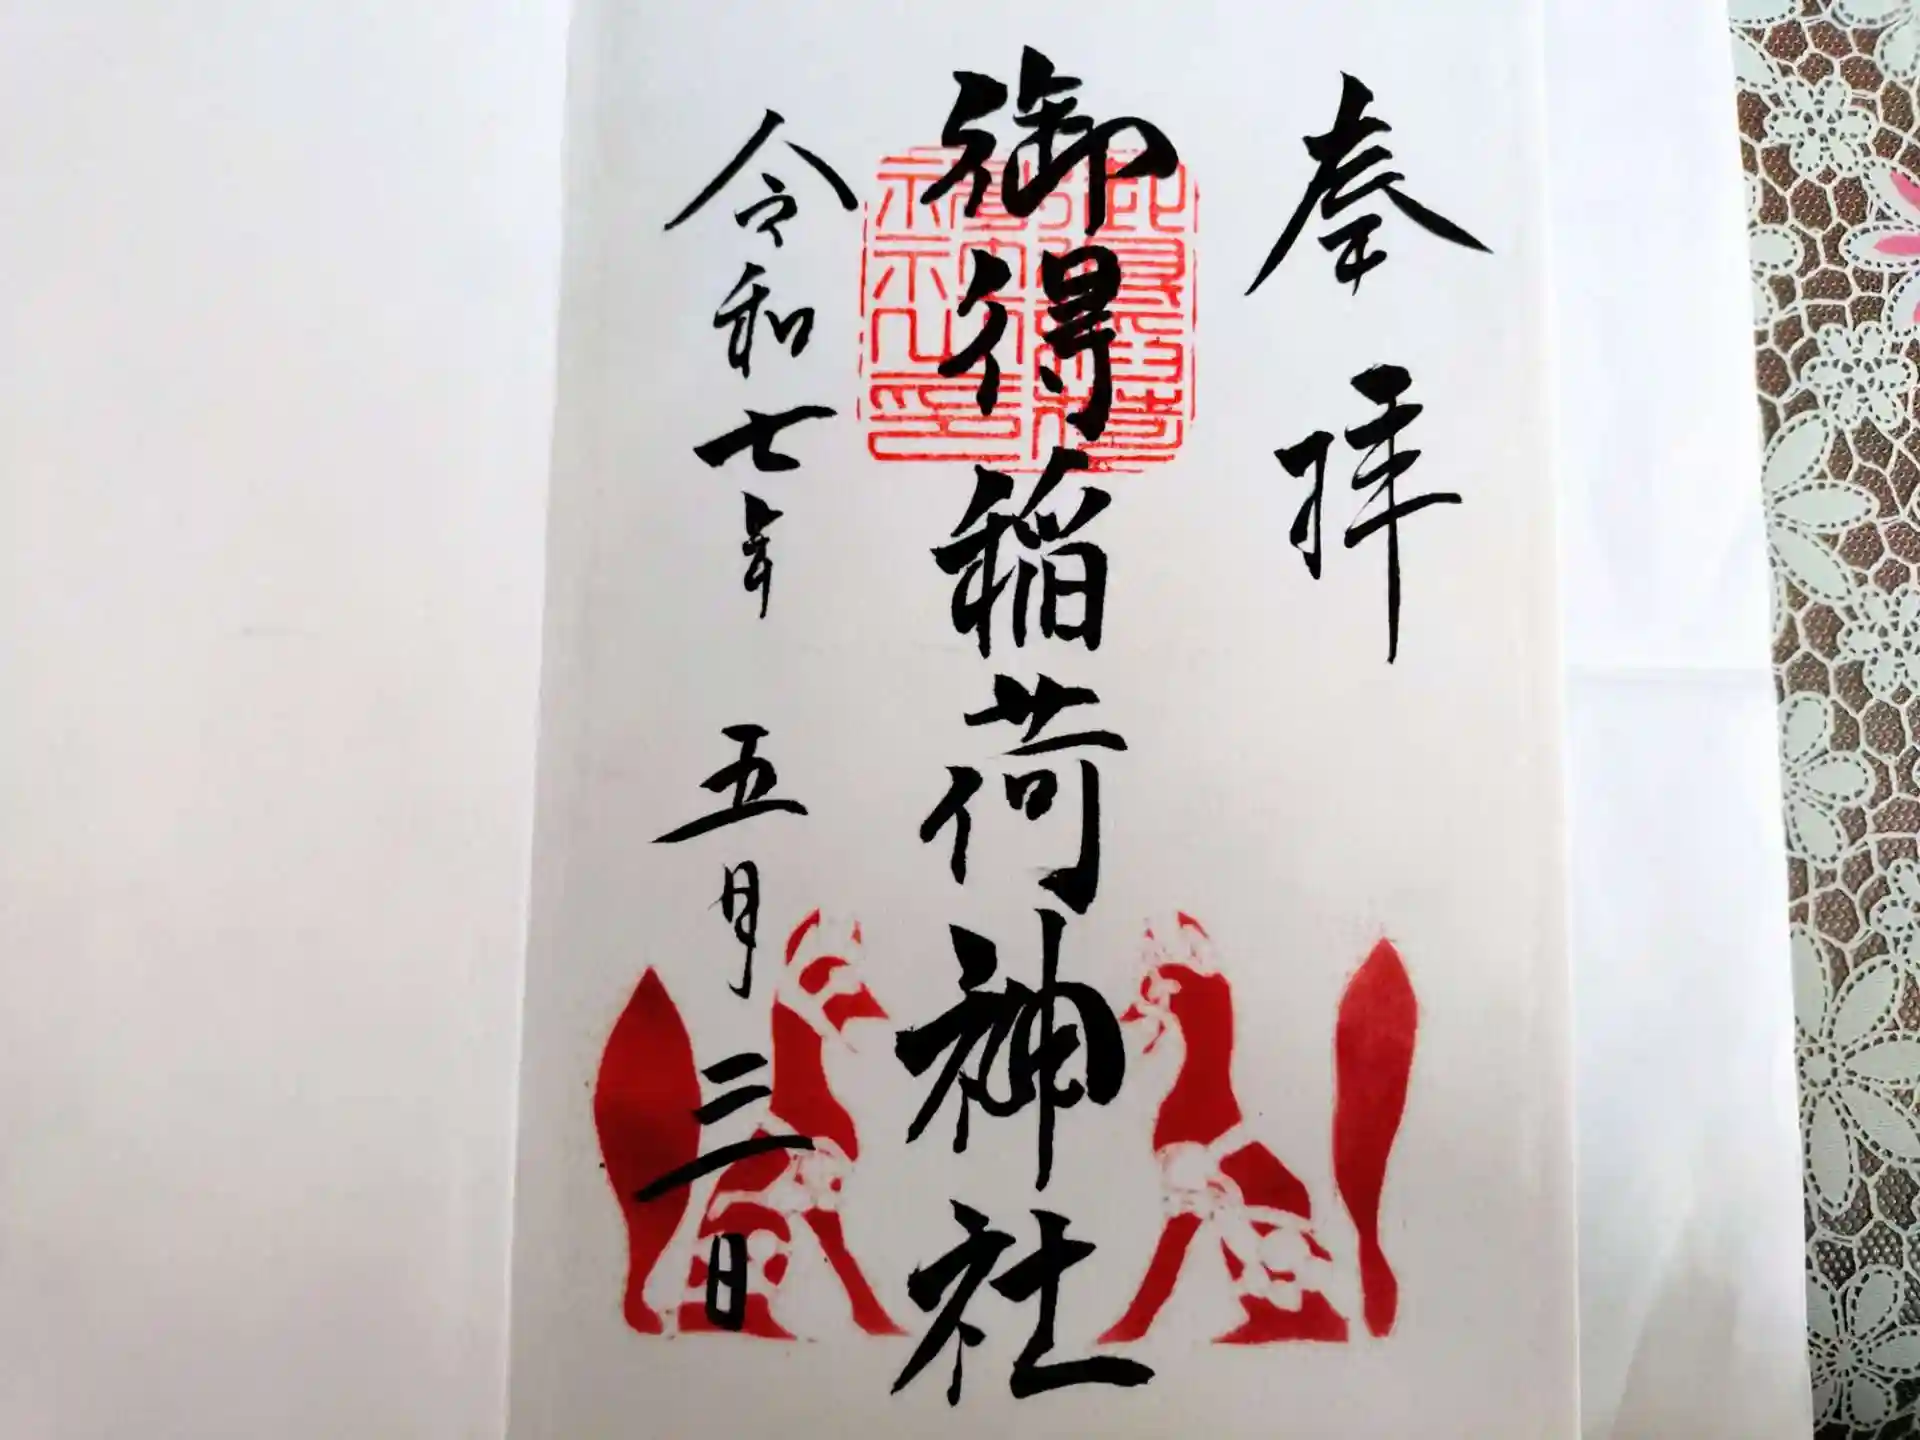 奉拝
御得稲荷神社
令和七年五月三日